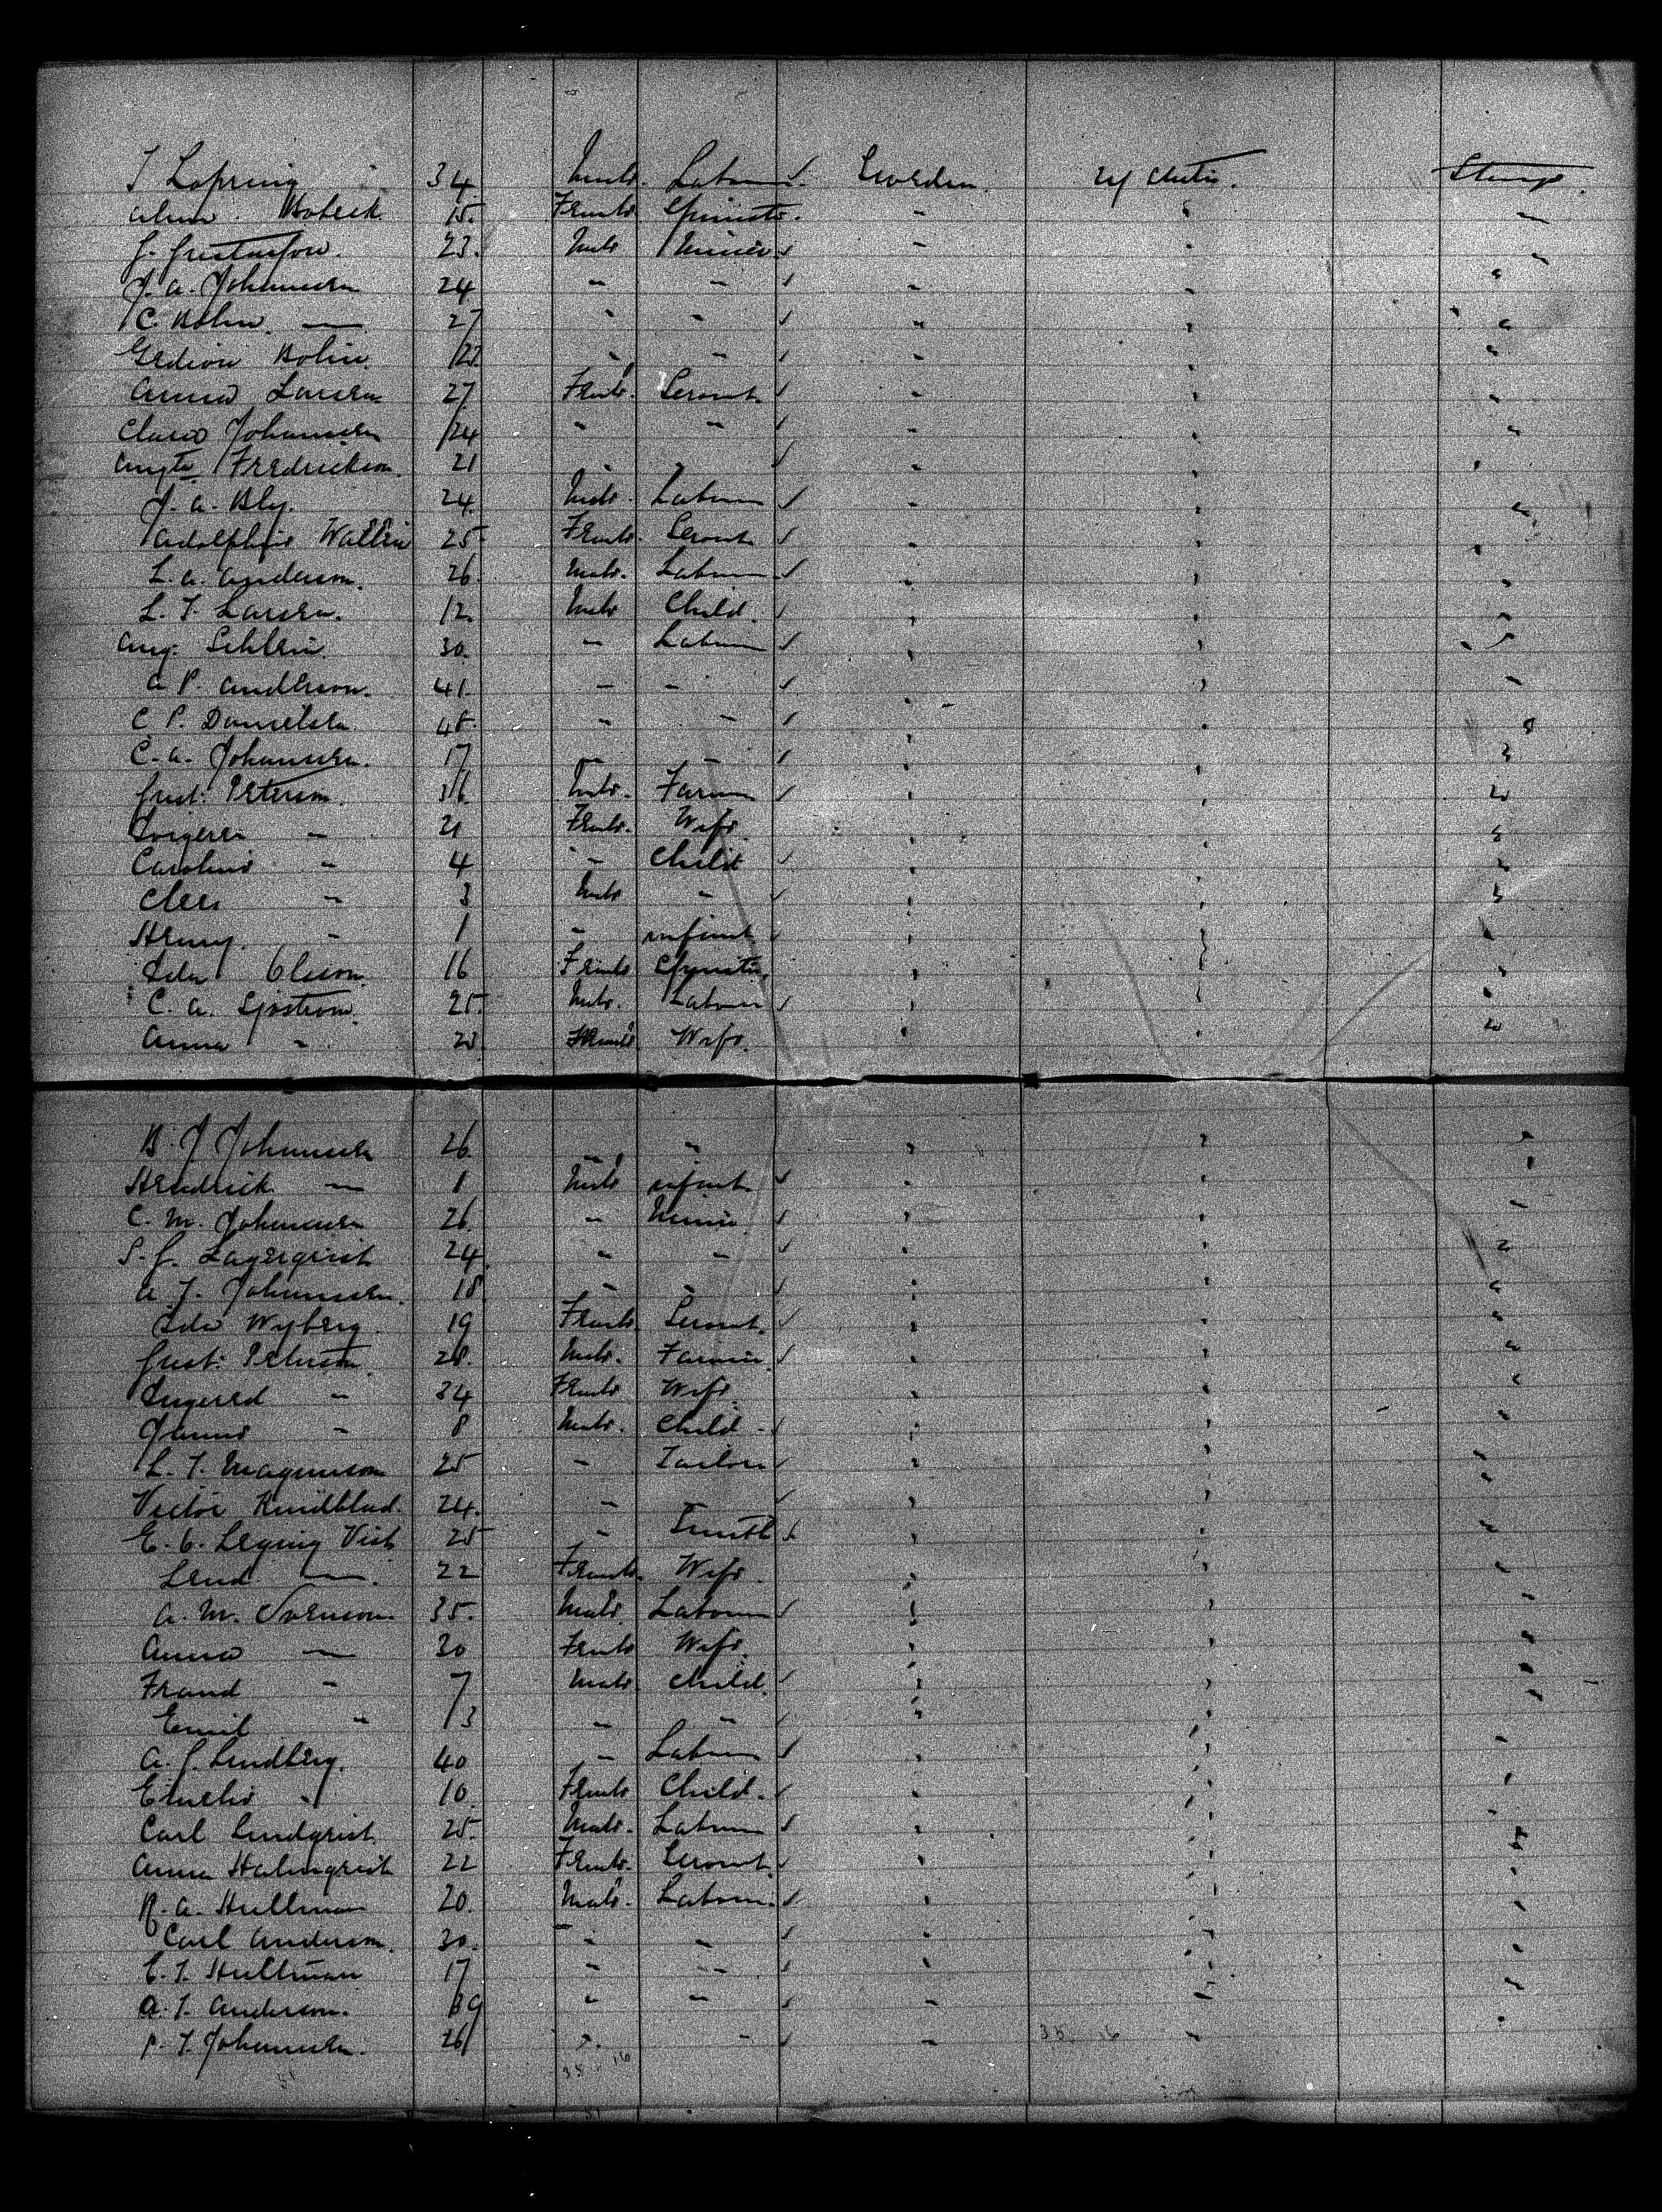 34 Male Labourer Sweden U States Steerage
15 Female Spinster " " "
G. Gustafson. 23. Male Miner " " "
J. A. Johansen 24 " " " " "
C. Bolin — 27 " " " " "
Bolin 22 " " " " "
Anna Larsen 27 Female Servant " " "
Clara Johansen 24 " " " " "
Augta Fredrickson. 21 " " " " "
J. A. Bly. 24 Male Labourer " " "
Wallin 25 Female Servant " " "
L. A. Anderson. 26. Male Labourer " " "
L. J. Larsen. 12. Male Child. " " "
Aug. 30. " Labourer " " "
A P. Anderson. 41. " " " " "
C P. Danielsen. 45. " " " " "
C. A. Johansen. 17 " " " " "
Gust: Peterson. 36 Male Farmer " " "
" 21 Female Wife " " "
Carolina " 4 " Child " " "
" 3 Male " " " "
Henry. " 1 " infant " " "
Ida Oleson. 16 Female Spinster " " "
C. A. Sjostrom. 25. Male Labourer " " "
Anna " 22 Female Wife. " " "
B. J Johansen 26 " " " " "
Hendrick — 1 Male infant " " "
C. M. Johansen 26. " Miner " " "
S. G. Lagerqvist 24 " " " " "
A. J. Johansen. 18 " " " " "
Ida Wyberg. 19 Female Servant. " " "
Gust: Peterson 28. Male Farmer. " " "
Ingered " 34 Female Wife. " " "
" 8 Male Child " " "
L. J. Magnuson 25 " Tailor " " "
Victor Rundblad. 24. " " " "
E. C. 25 " Smith " " "
Lena — 22 Female Wife. " " "
A. M. Svenson. 35. Male Labourer " " "
Anna — 30 Female Wife. " " "
" 7 Male Child. " " "
Emil " 3 " " " " "
A. G. Lindberg. 40 " Labourer " " "
" 10. Female Child. " " "
Carl Lindqvist. 25. Male Labourer " " "
Anna Halmqvist 22 Female Servant. " " "
A. Hullman 20. Male Labourer. " " "
Carl Anderson. 30. " " " " "
C. J. Hullman 17 " " " " "
A. J. Anderson. 19 " " " " "
P. J. Johansen. 26 " " " 35 16 " "
35 16